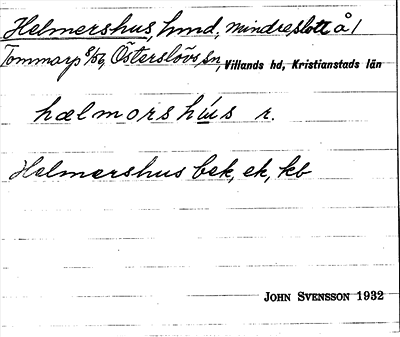 Helmershus, hmd, mindre slott å 1
Tommarp 8/56, Österslövs sn, Villands hd, Kristianstads län
hælmorshu̍s r.
Helmershus bek, ek, kb
JOHN SVENSSON 1932